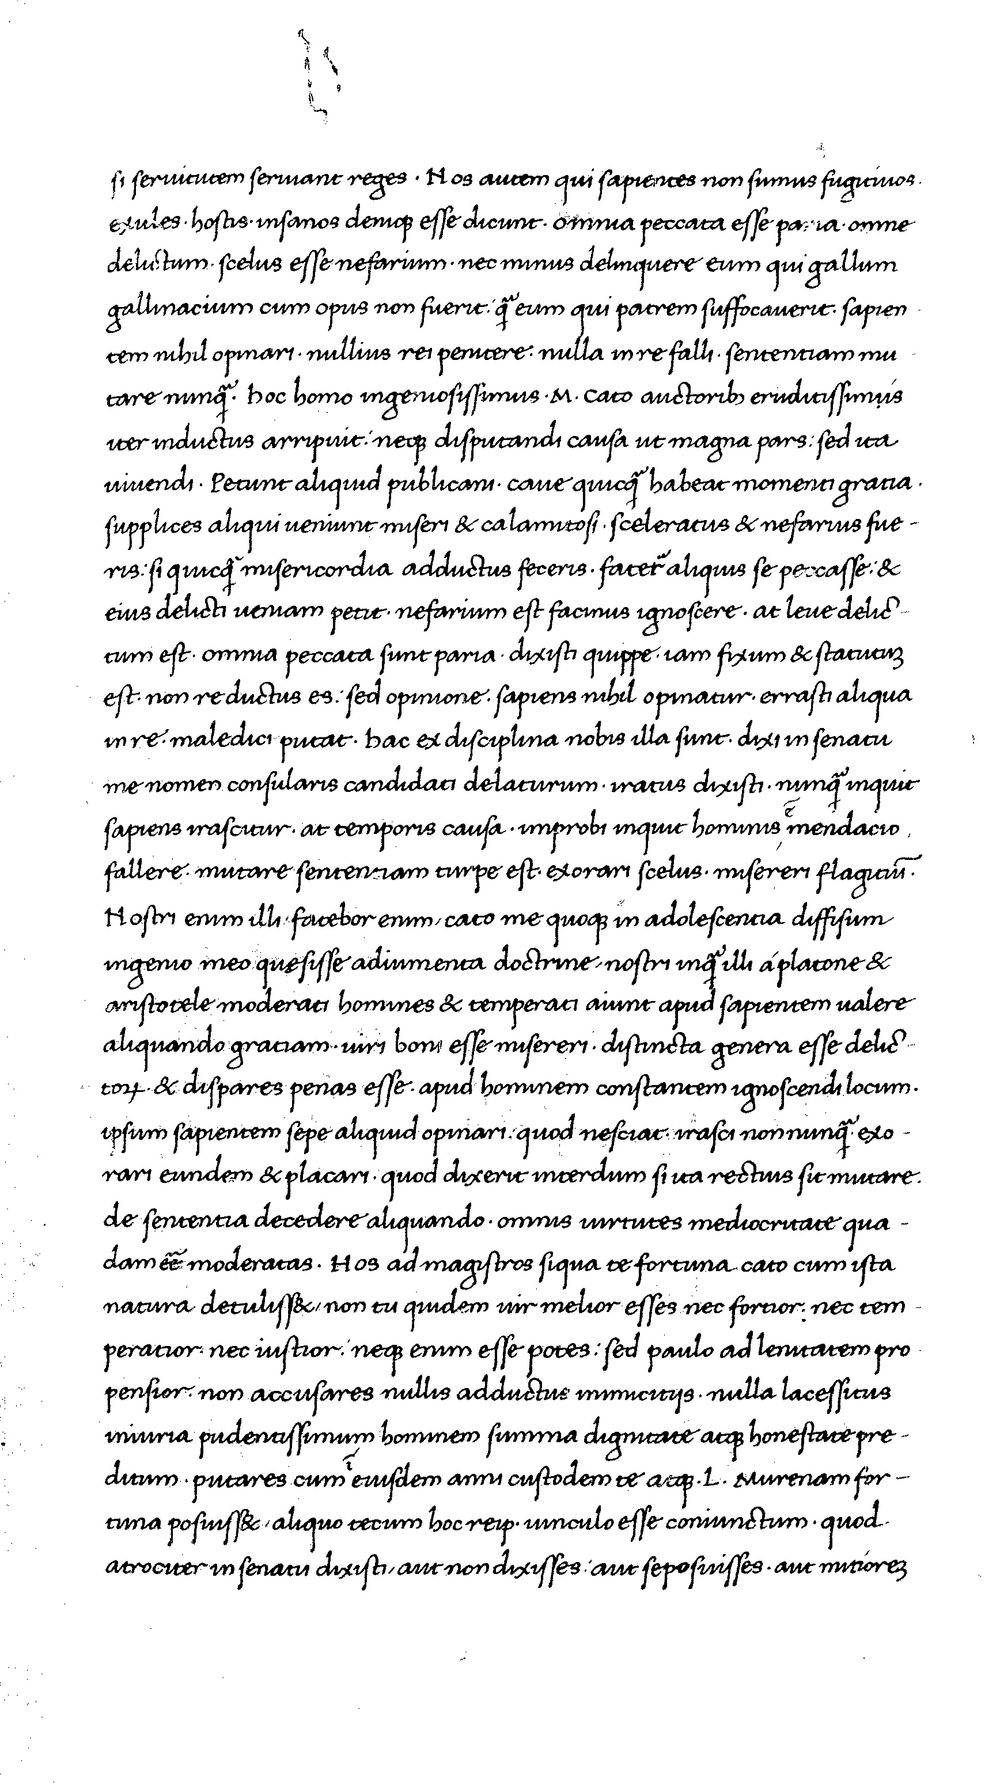 si seruitutem seruiant reges · Nos autem qui sapientes non sumus fugitiuos ·
exules · hostis · insanos deniqꝫ esse dicunt · omnia peccata esse paria · omne
delictum · scelus esse nefarium · nec minus delinquere eum qui gallum
gallinacium cum opus non fuerit: q̃ eum qui patrem suffocauerit · sapien
tem nihil opinari · nullius rei penitere · nulla in re falli · sententiam mu
tare nunq̃ · hoc homo ingeniosissimus · M · Cato auctoribꝫ eruditissimis
iter inductus arripuit: neqꝫ disputandi causa ut magna pars: sed ita
uiuendi · Petunt aliquid publicani · caue quicq̃ habeat momenti gratia ·
supplices aliqui ueniunt miseri & calamitosi · sceleratus & nefarius fue -
ris: si quicq̃ misericordia adductus feceris · fatet᷑ aliquis se peccasse: &
eius delicti ueniam petit · nefarium est facinus ignoscere · at leue delic -
tum est · omnia peccata sunt paria · dixisti quippe · iam fixum & statutuꝫ
est · non re ductus es: sed opinione · sapiens nihil opinatur · errasti aliqua
in re · maledici putat · hac ex disciplina nobis illa sunt · dixi in senatu
me nomen consularis candidati delaturum · iratus dixisti · nunq̃ inquit
sapiens irascitur · at temporis causa · improbi inquit hominis ē mendacio
fallere · mutare sententiam turpe est · exorari scelus · misereri flagitiū ·
Nostri enim illi · fatebor enim / cato me quoqꝫ in adolescentia diffisum
ingenio meo quesisse adiumenta doctrine / nostri inq̃ illi á platone &
aristotele moderati homines & temperati aiunt apud sapientem ualere
aliquando gratiam · uiri boni esse misereri · distincta genera esse delic -
toꝝ · & dispares penas esse · apud hominem constantem ignoscendi locum ·
ipsum sapientem sepe aliquid opinari: quod nesciat · irasci non nunq̃ · exo -
rari eundem & placari · quod dixerit interdum si ita rectius sit mutare ·
de sententia decedere aliquando · omnis uirtutes mediocritate qua -
dam eē moderatas · Hos ad magistros siqua te fortuna cato cum ista
natura detuliss& / non tu quidem uir melior esses nec fortior: nec tem -
peratior: nec iustior: neqꝫ enim esse potes: sed paulo ad lenitatem pro
pensior: non accusares nullis adductus inimicitijs · nulla lacessitus
iniuria pudentissimum hominem summa dignitate atqꝫ honestate pre -
ditum · putares cum ī eiusdem anni custodem te atqꝫ · L · Murenam for -
tuna posuiss& / aliquo tecum hoc reip · uinculo esse coniunctum · quod
atrociter in senatu dixisti / aut non dixisses: aut seposuisses · aut mitioreꝫ